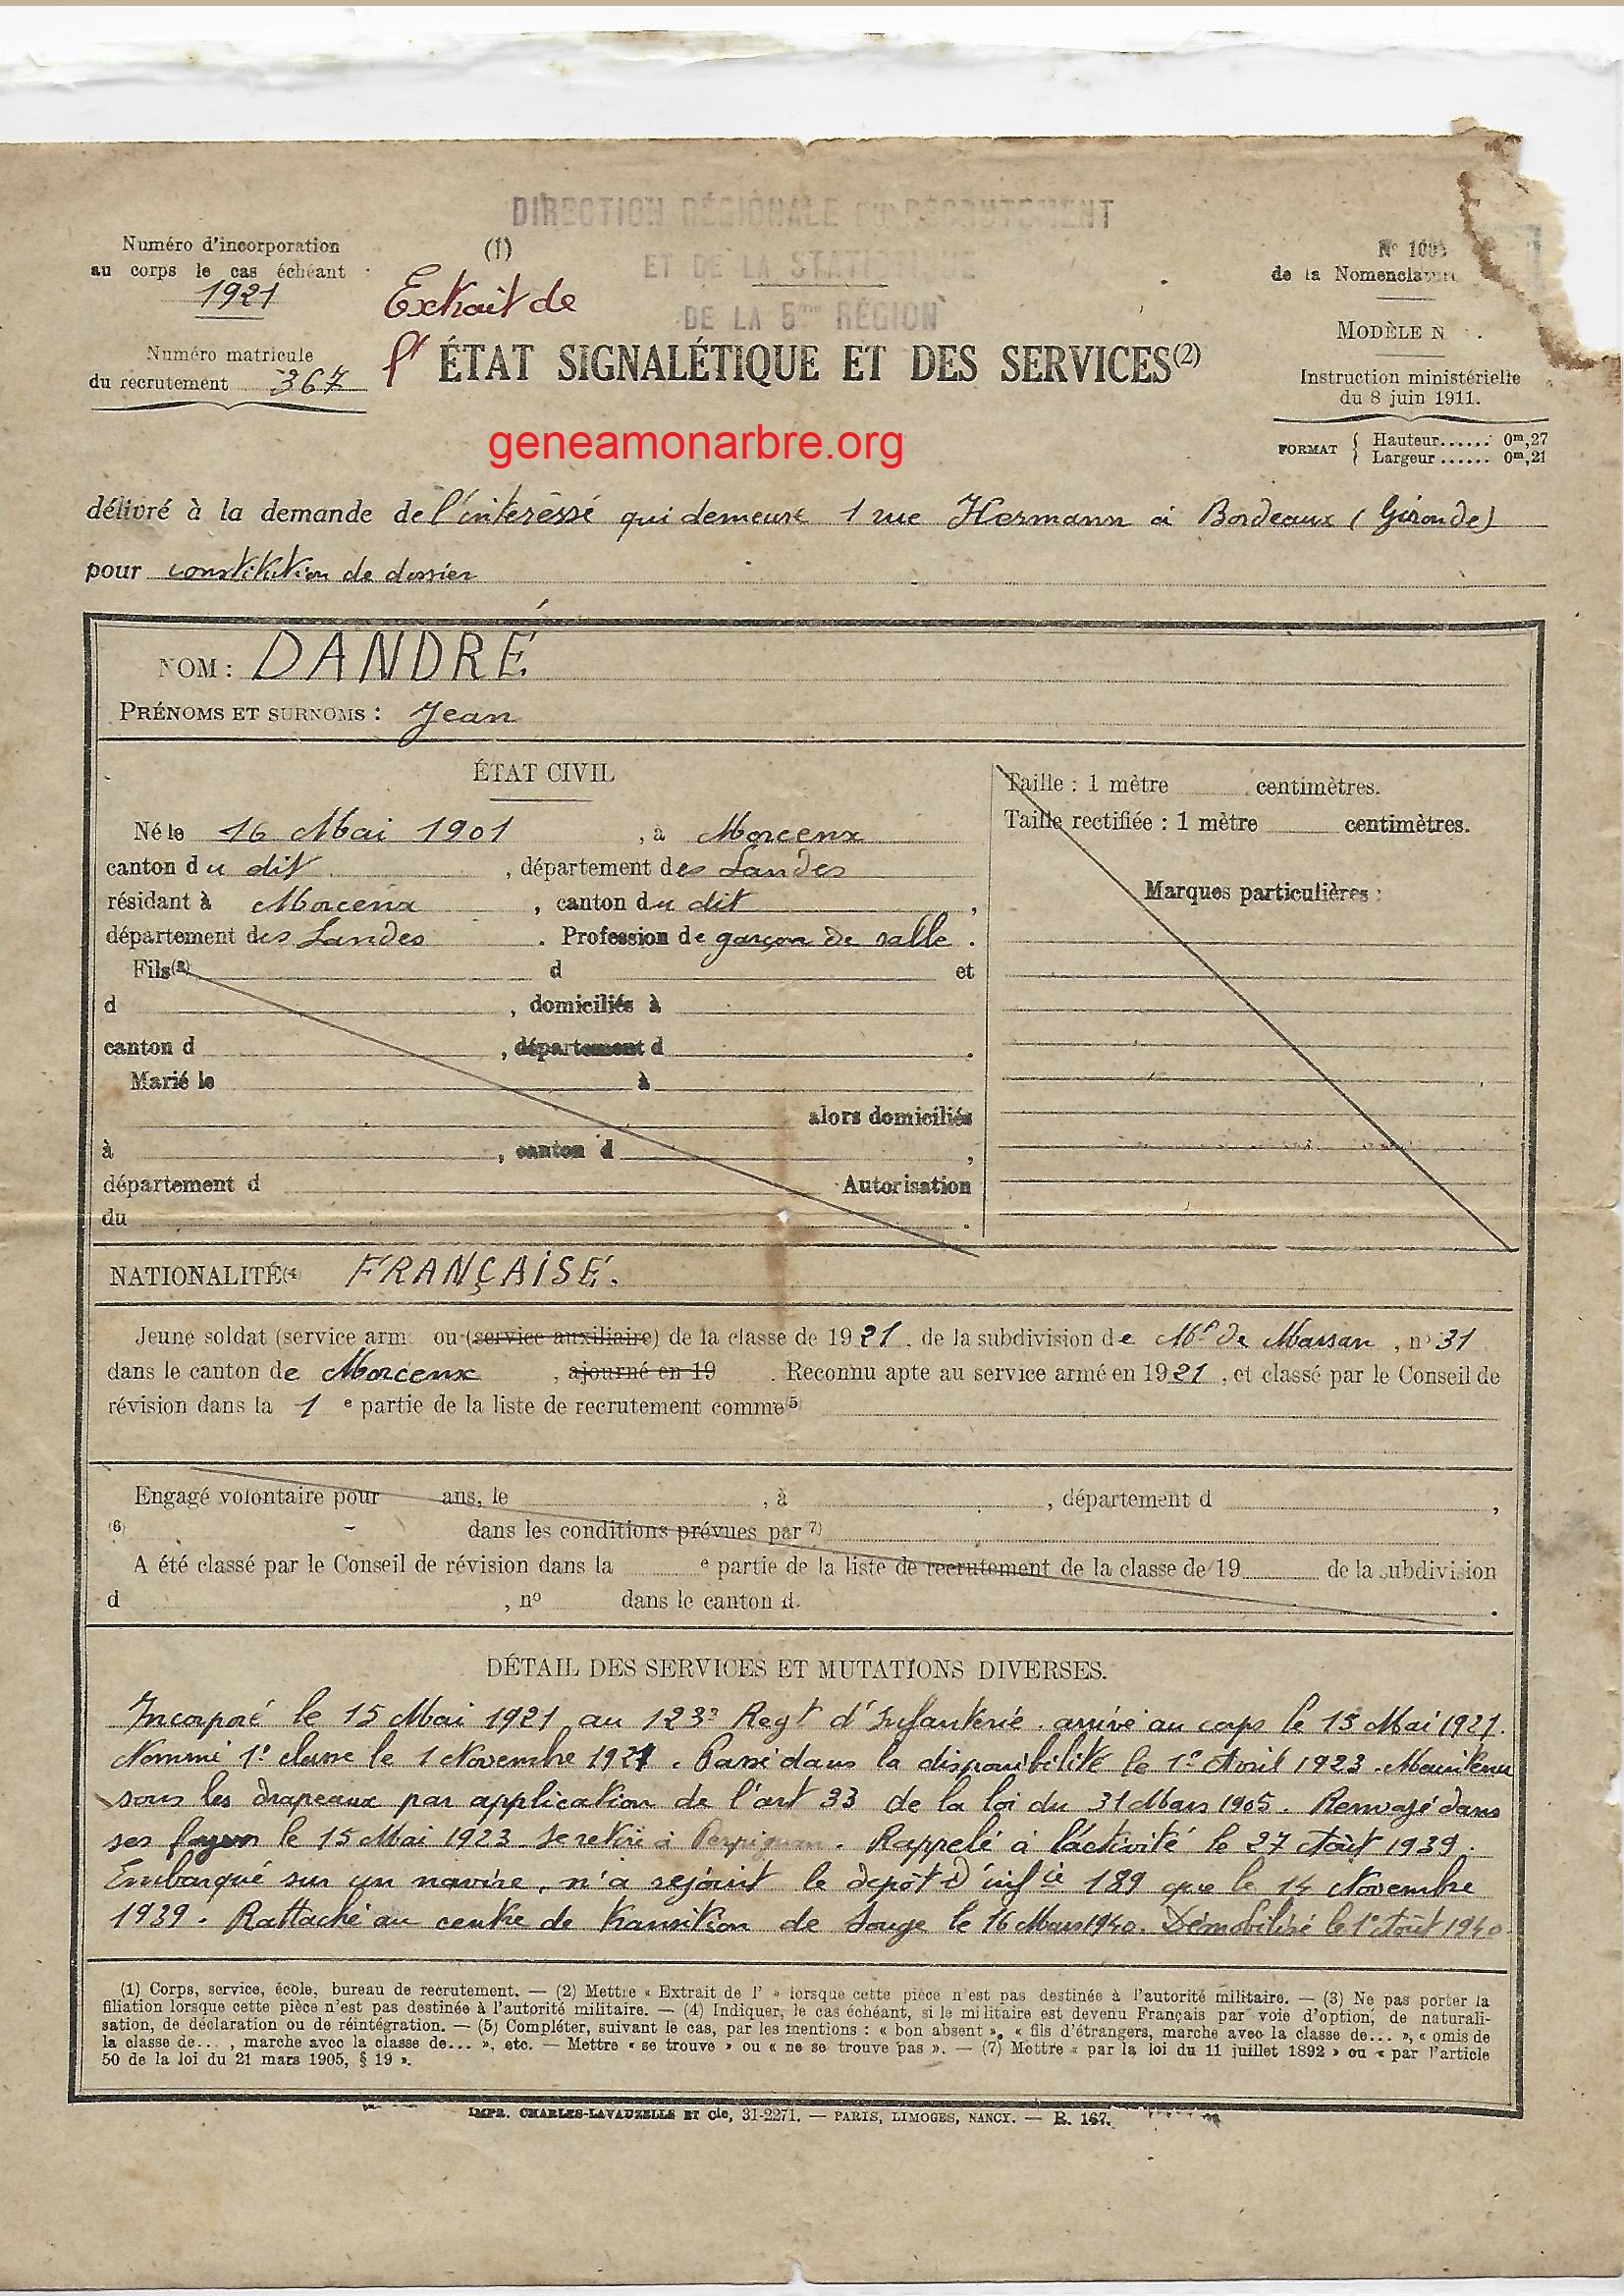 DIRECTION RÉGIONALE DU RECRUTEMENT
ET DE LA STATISTIQUE
DE LA 5me RÉGION
Numéro d'incorporation
au corps le cas échéant
1921
Numéro matricule
du recrutement 367
(1)
Extrait de
l' ÉTAT SIGNALÉTIQUE ET DES SERVICES(2)
geneamonarbre.org
N° 100
de la Nomenclature
MODÈLE N
Instruction ministérielle
du 8 juin 1911.
FORMAT { Hauteur...... 0m,27
Largeur ...... 0m,21
délivré à la demande de l'intéressé qui demeure 1 rue Hermann à Bordeaux (Gironde)
pour constitution de dossier
NOM : DANDRÉ
PRÉNOMS ET SURNOMS : Jean
ÉTAT CIVIL
Né le 16 Mai 1901, à Morcenx
canton du dit, département des Landes
résidant à Morcenx, canton du dit,
département des Landes. Profession de garçon de salle.
Fils(3) d et
d , domiciliés à
canton d , département d .
Marié le à
alors domiciliés
à , canton d ,
département d Autorisation
du .
Taille : 1 mètre centimètres.
Taille rectifiée : 1 mètre centimètres.
Marques particulières :
NATIONALITÉ(4 FRANÇAISE.
Jeune soldat (service armé ou (service auxiliaire) de la classe de 1921, de la subdivision de Mt de Marsan, n° 31
dans le canton de Morcenx, ajourné en 19 . Reconnu apte au service armé en 1921, et classé par le Conseil de
révision dans la 1e partie de la liste de recrutement comme(5)
Engagé volontaire pour ans, le , à , département d ,
(6) dans les conditions prévues par 7)
A été classé par le Conseil de révision dans la e partie de la liste de recrutement de la classe de 19 de la subdivision
d , n° dans le canton d.
DÉTAIL DES SERVICES ET MUTATIONS DIVERSES.
Incorporé le 15 Mai 1921 au 123e Regt d'Infanterie. arrivé au corps le 15 Mai 1921.
Nommé 1e classe le 1 Novembre 1921. Passé dans la disponibilité le 1e Avril 1923. Maintenu
sous les drapeaux par application de l'art 33 de la loi du 31 Mars 1905. Renvoyé dans
ses foyers le 15 Mai 1923 se retire à Perpignan. Rappelé à l'activité le 27 Août 1939.
Embarqué sur un navire, n'a rejoint le dépôt d'infie 189 que le 14 Novembre
1939. Rattaché au centre de transition de Souge le 16 Mars 1940. Démobilisé le 1e Août 1940
(1) Corps, service, école, bureau de recrutement. — (2) Mettre « Extrait de l' » lorsque cette pièce n'est pas destinée à l'autorité militaire. — (3) Ne pas porter la
filiation lorsque cette pièce n'est pas destinée à l'autorité militaire. — (4) Indiquer, le cas échéant, si le militaire est devenu Français par voie d'option, de naturali-
sation, de déclaration ou de réintégration. — (5) Compléter, suivant le cas, par les mentions : « bon absent », « fils d'étrangers, marche avec la classe de... », « omis de
la classe de... , marche avec la classe de... », etc. — Mettre « se trouve » ou « ne se trouve pas ». — (7) Mettre « par la loi du 11 juillet 1892 » ou « par l'article
50 de la loi du 21 mars 1905, § 19 ».
IMPR. CHARLES-LAVAUZELLE ET Cie, 31-2271. — PARIS, LIMOGES, NANCY. — R. 167.